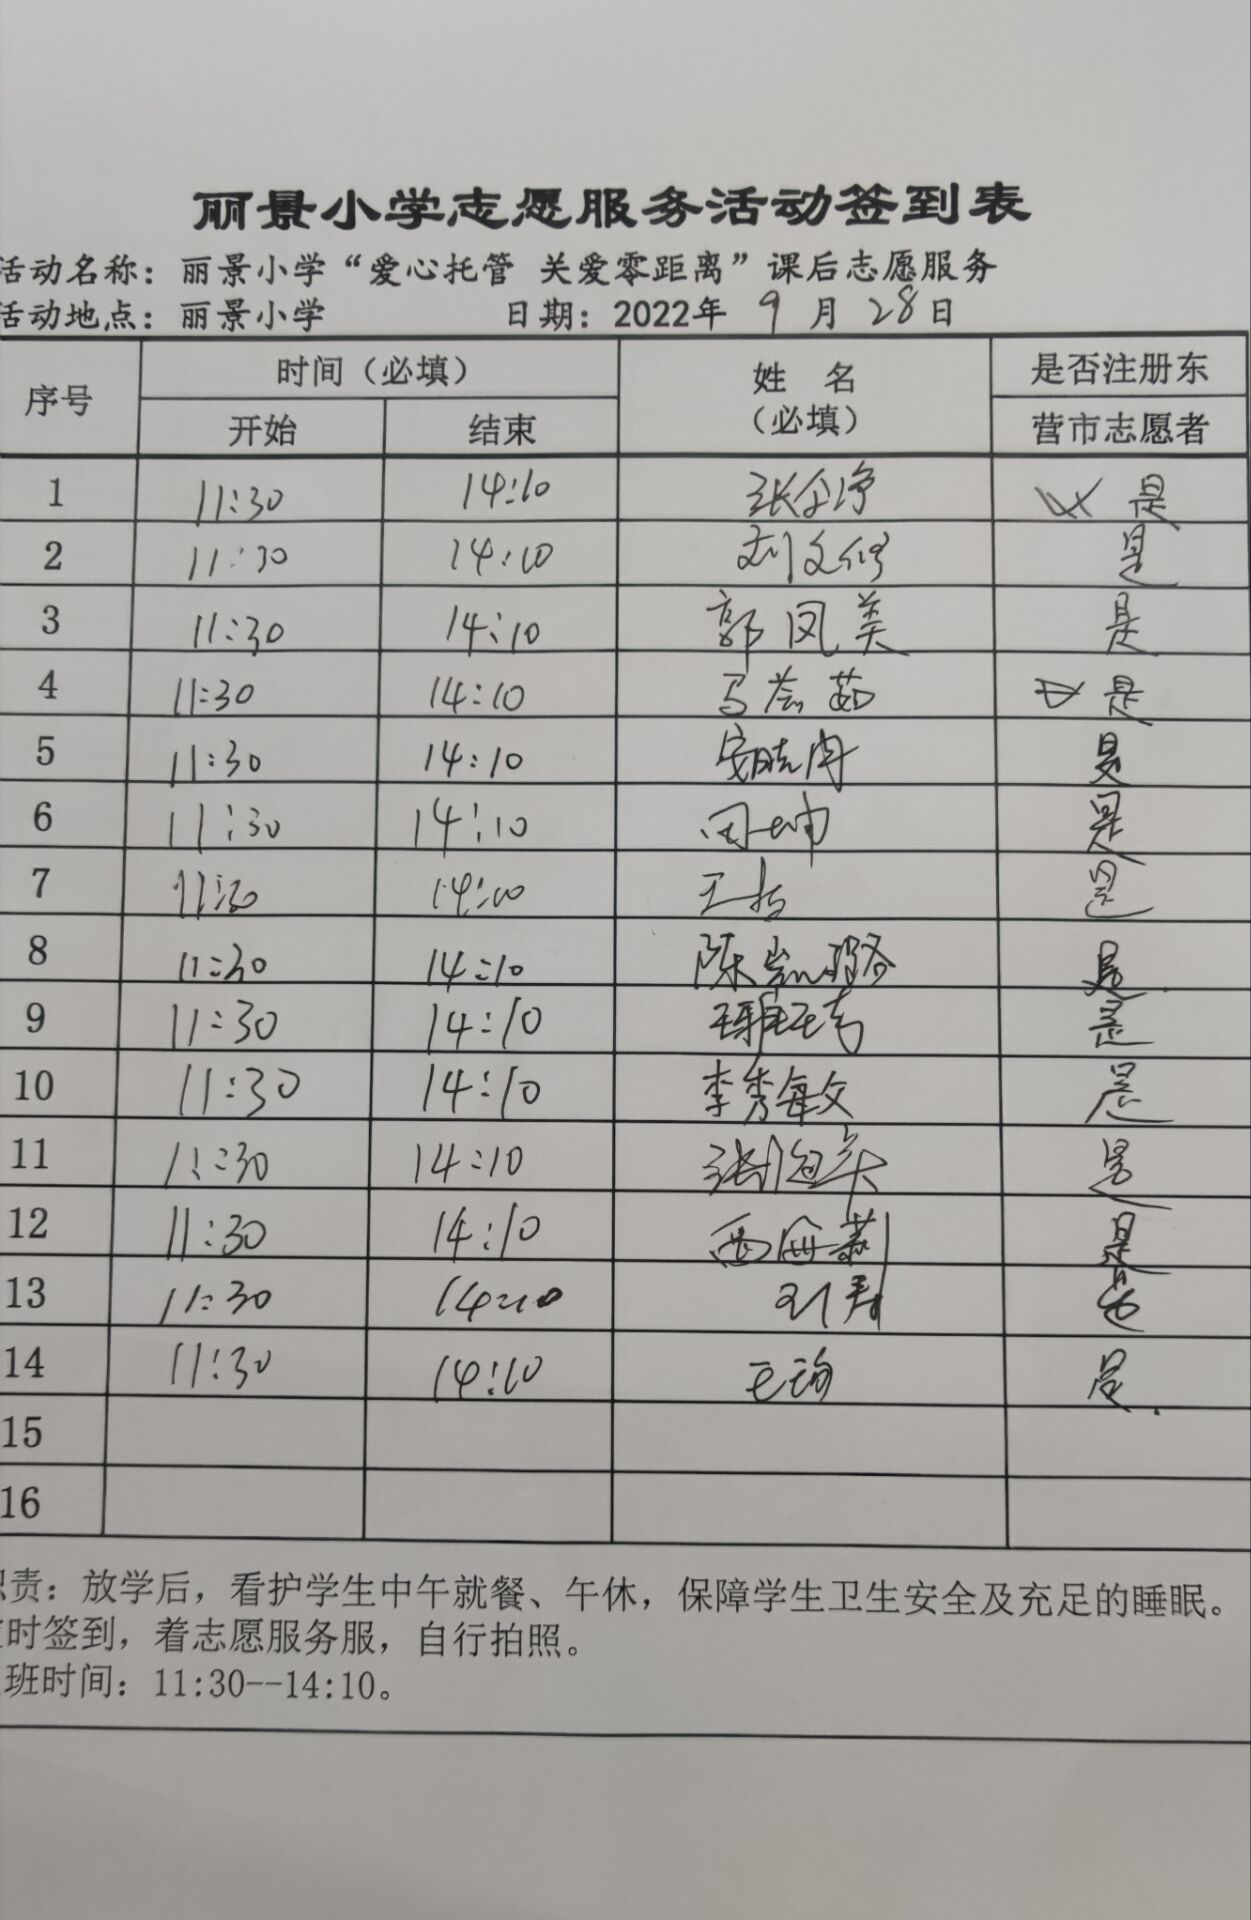 丽景小学志愿服务活动签到表
活动名称：丽景小学“爱心托管 关爱零距离”课后志愿服务
活动地点：丽景小学 日期：2022年 9 月 28 日
序号 时间（必填） 姓 名（必填） 是否注册东营市志愿者
开始 结束
1 11:30 14:10 是
2 11:30 14:10 刘文修 是
3 11:30 14:10 郭凤美 是
4 11:30 14:10 马 茹 是
5 11:30 14:10 是
6 11:30 14:10 田坤 是
7 11:30 14:10 王 是
8 11:30 14:10 陈凯璐 是
9 11:30 14:10 是
10 11:30 14:10 李秀敏 是
11 11:30 14:10 张 是
12 11:30 14:10 是
13 11:30 14:10 刘寿 是
14 11:30 14:10 王 是
15
16
职责：放学后，看护学生中午就餐、午休，保障学生卫生安全及充足的睡眠。
时签到，着志愿服务服，自行拍照。
班时间：11:30--14:10。